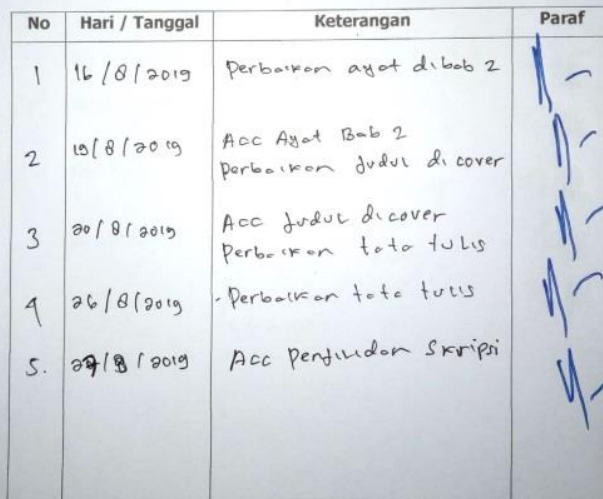 No Hari / Tanggal Keterangan Paraf
1 16/8/2019 Perbaikan ayat dibab 2
2 19/8/2019 Acc Ayat Bab 2
Perbaikan Judul di cover
3 20/8/2019 Acc Judul dicover
Perbaikan tata tulis
4 26/8/2019 - Perbaikan tata tulis
5. 27/8/2019 Acc Penjilidan Skripsi